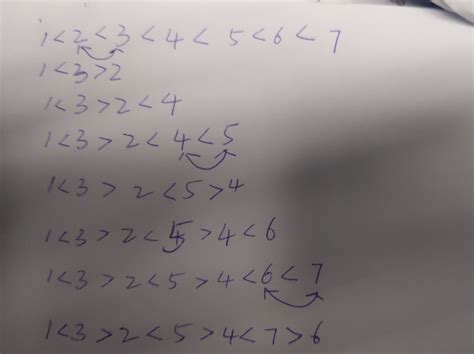 1<2<3<4<5<6<7
1<3>2
1<3>2<4
1<3>2<4<5
1<3>2<5>4
1<3>2<5>4<6
1<3>2<5>4<6<7
1<3>2<5>4<7>6